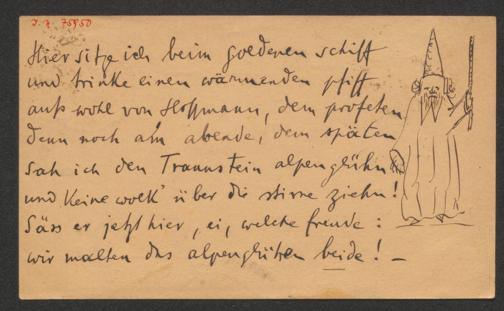 I. N. 75950
Hier sitze ich beim goldenen schiff
und trinke einen wärmenden pfiff
aufs wohl von Hoffmann, dem profeten,
denn noch am abende, dem späten
sah ich den Traunstein alpenglühn
und keine wolk' über die stirne ziehn!
Säss er jetzt hier, ei, welche freude:
wir malten das alpenglühen beide! –